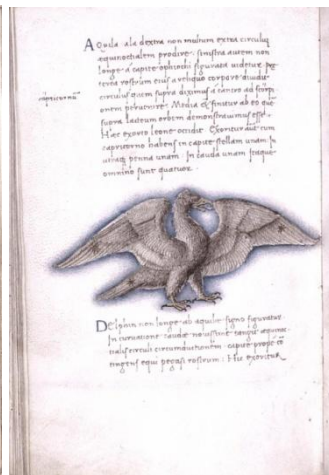 AQuila ala dextra non multum extra circulum
equinoctialem prodire: sinistra autem non
longe a capite ophiuchi figurata uidetur
rostrum eius a reliquo corpore
circulus quem supra diximus a cancro ad
onem peruenire. Media
supra lacteum orbem demonstrauimus esse.
Hæc exorto leone occidit. Exoritur cum
capricorno habens in capite stellam unam. In
utraque penna unam. In cauda unam. Itaque
omnino sunt quatuor.
DElphin non longe ab aquile signo figuratus.
In curuatione caudæ nouissime tangit
circuli circumductionem. capite prope
tingens equi pegasi rostrum: Hic exoritur